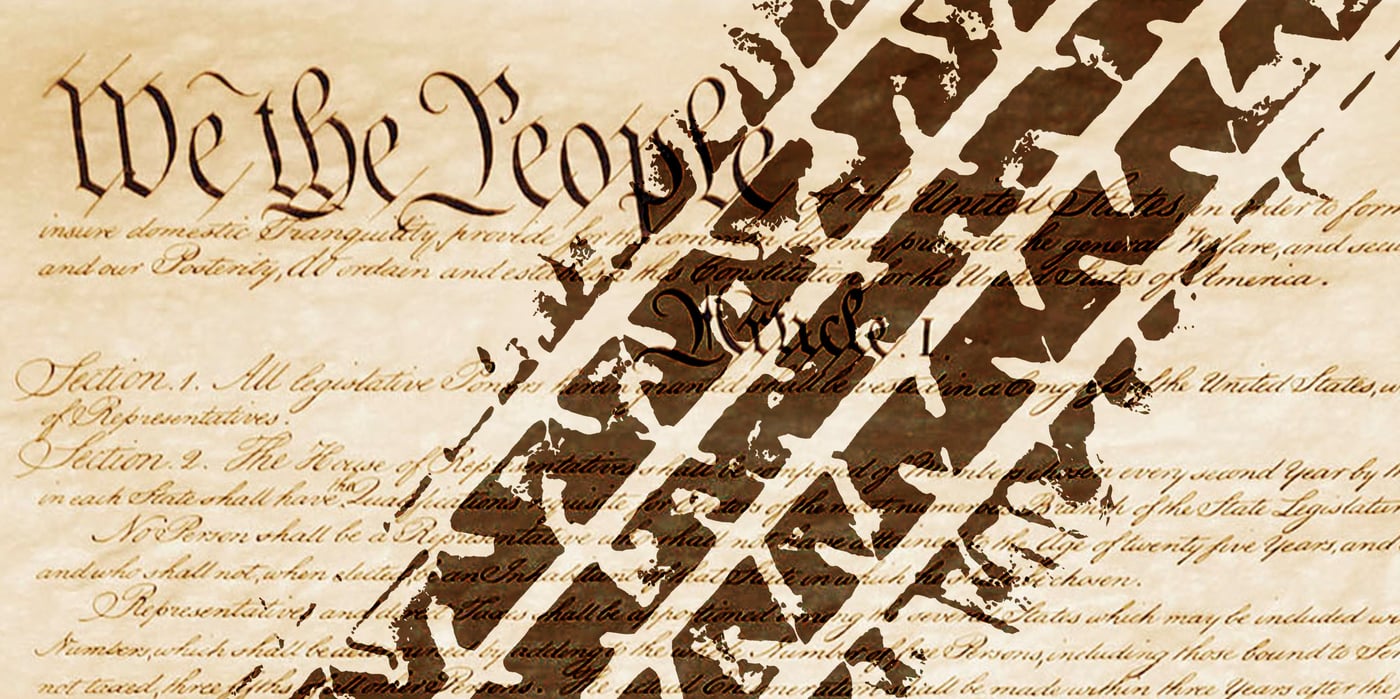 We the People of the United States, in Order to for
insure domestic Tranquility, provide for the common defence, promote the general Welfare, and secu
and our Posterity, do ordain and establish this Constitution for the United States of America.
Article. I.
Section. 1. All legislative Powers herein granted shall be vested in a Congress of the United States, w
of Representatives.
Section. 2. The House of Representatives shall be composed of chosen every second Year by
in each State shall have the Qualifications requisite for of the most numerous Branch of the State Legislatur
No Person shall be a Representative who shall not have attained to the Age of twenty five Years, and
and who shall not, when elected, be an Inhabitant of that State in which he shall be chosen.
Representatives and direct Taxes shall be apportioned among the several States which may be included wi
Numbers, which shall be determined by adding to the whole Number of free Persons, including those bound to Ser
not taxed, three fifths of all other Persons. The actual Enumeration shall be made within three Years after